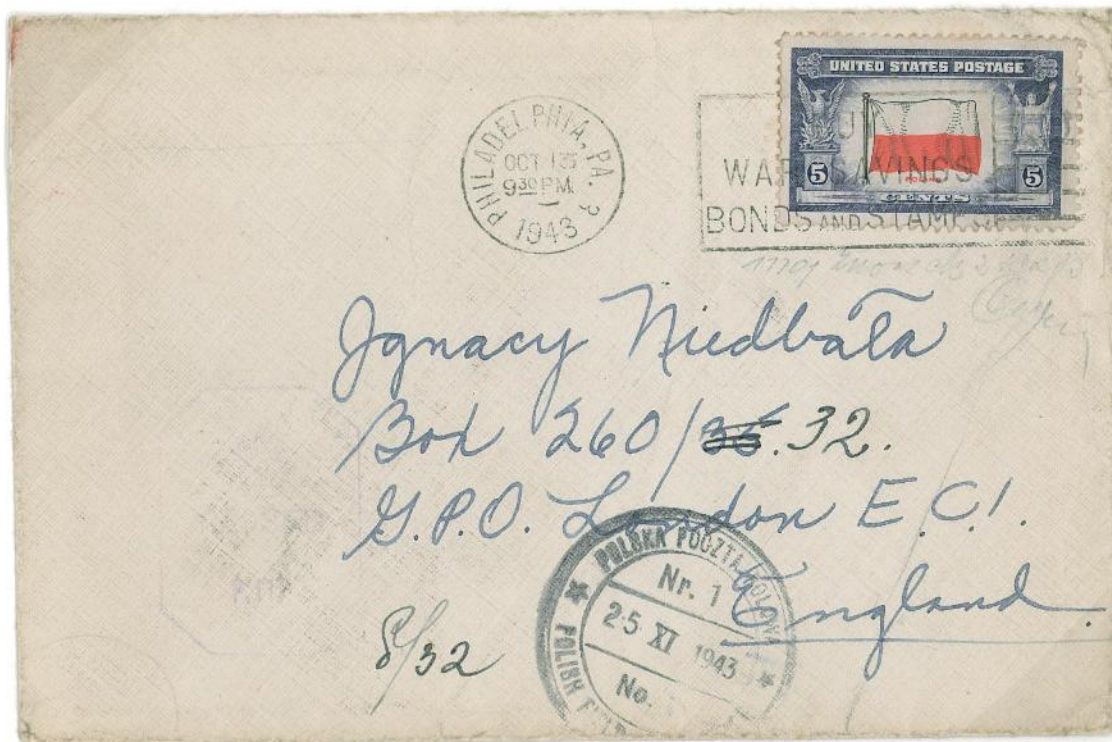 UNITED STATES POSTAGE
5 5
CENTS
PHILADELPHIA, PA. 3
OCT 13
9 30 PM
1943
WAR SAVINGS
BONDS AND STAMPS
Ignacy Niedbała
Box 260/35. 32.
G.P.O. London E.C.1.
England
8/32
POLSKA POCZTA POLOWA
Nr. 1
25 XI 1943
No.
POLISH FIELD